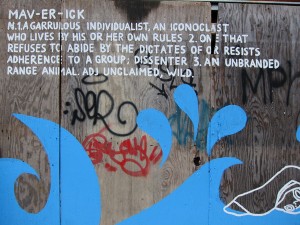 MAV-ER-ICK
N.1.A GARRULOUS INDIVIDUALIST, AN ICONOCLAST
WHO LIVES BY HIS OR HER OWN RULES 2. ONE THAT
REFUSES TO ABIDE BY THE DICTATES OF OR RESISTS
ADHERENCE TO A GROUP; DISSENTER 3. AN UNBRANDED
RANGE ANIMAL. ADJ. UNCLAIMED, WILD.